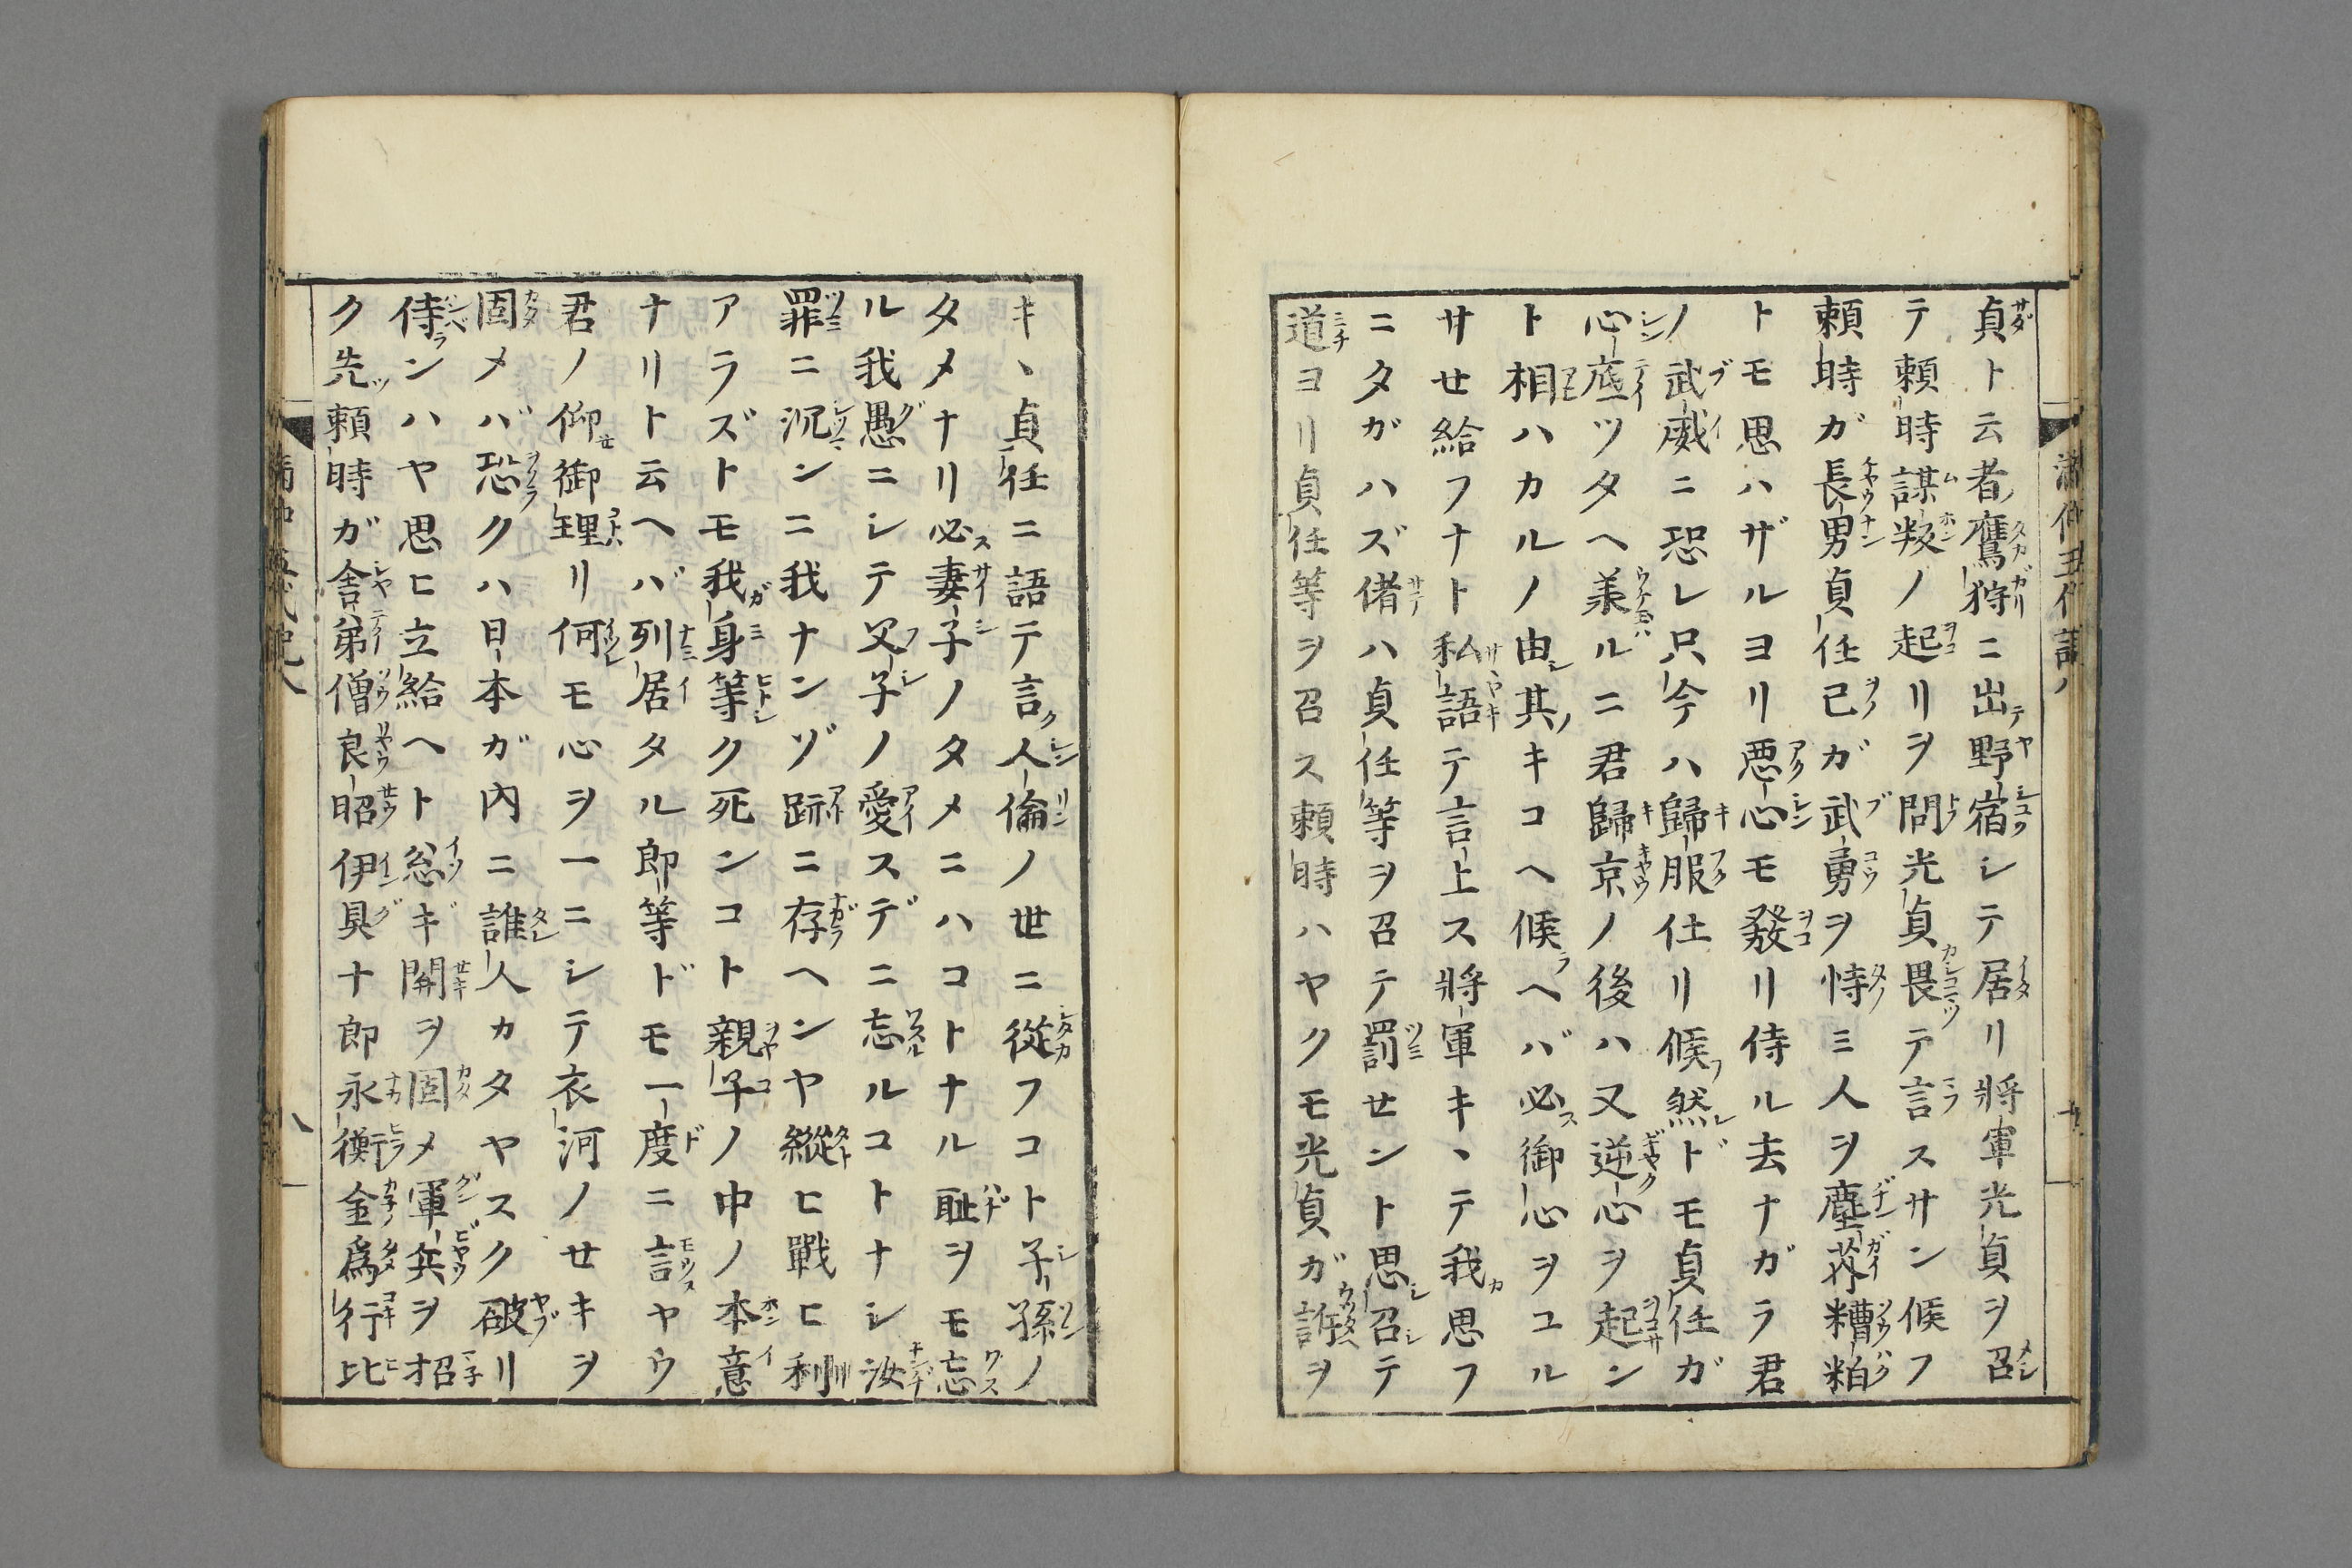 貞ト云者鷹狩ニ出野宿シテ居リ將軍光貞ヲ召
テ頼時謀叛ノ起リヲ問光貞畏テ言スサン候フ
頼時ガ長男貞任己ガ武勇ヲ恃ミ人ヲ塵芥糟粕
トモ思ハザルヨリ悪心モ發リ侍ル去ナガラ君
ノ武威ニ恐レ只今ハ歸服仕リ候然ドモ貞任ガ
心底ツタヘ羕ルニ君歸京ノ後ハ又逆心ヲ起ン
ト相ハカルノ由其キコヘ候ヘバ必御心ヲユル
サセ給フナト私語テ言上ス將軍キヽテ我思フ
ニタガハズ偖ハ貞任等ヲ召テ罰セント思召テ
道ヨリ貞任等ヲ召ス頼時ハヤクモ光貞ガ訴ヲ
キヽ貞任ニ語テ言人倫ノ世ニ從フコト子孫ノ
タメナリ必妻子ノタメニハコトナル耻ヲモ忘
ル我愚ニシテ父子ノ愛スデニ忘ルコトナシ汝
罪ニ沉ンニ我ナンゾ跡ニ存ヘンヤ縦ヒ戰ヒ利
アラズトモ我身等ク死ンコト親子ノ中ノ本意
ナリト云ヘバ列居タル郎等ドモ一度ニ言ヤウ
君ノ仰御理リ何モ心ヲ一ニシテ衣河ノせキヲ
固メバ恐クハ日本ガ內ニ誰人カタヤスク破リ
侍ンハヤ思ヒ立給ヘト忩ギ関ヲ固メ軍兵ヲ招
ク先頼時ガ舎弟僧良昭伊具十郎永衡金爲行比
八